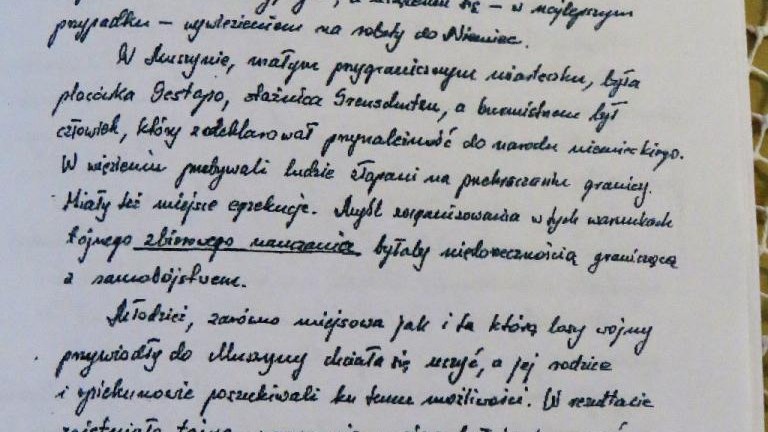 się – w najlepszym
przypadku – wywiezieniem na roboty do Niemiec.
W Muszynie, małym przygranicznym miasteczku, była
placówka Gestapo, strażnica Grenschutzu, a burmistrzem był
człowiek, który zadeklarował przynależność do narodu niemieckiego.
W więzieniu przebywali ludzie złapani na przekraczaniu granicy.
Miały też miejsce egzekucje. Myśl zorganizowania w tych warunkach
tajnego zbiorowego nauczania byłaby niedorzecznością graniczącą
z samobójstwem.
Młodzież, zarówno miejscowa jak i ta którą losy wojny
przywiodły do Muszyny chciała się uczyć, a jej rodzice
i opiekunowie poszukiwali ku temu możliwości. W rezultacie